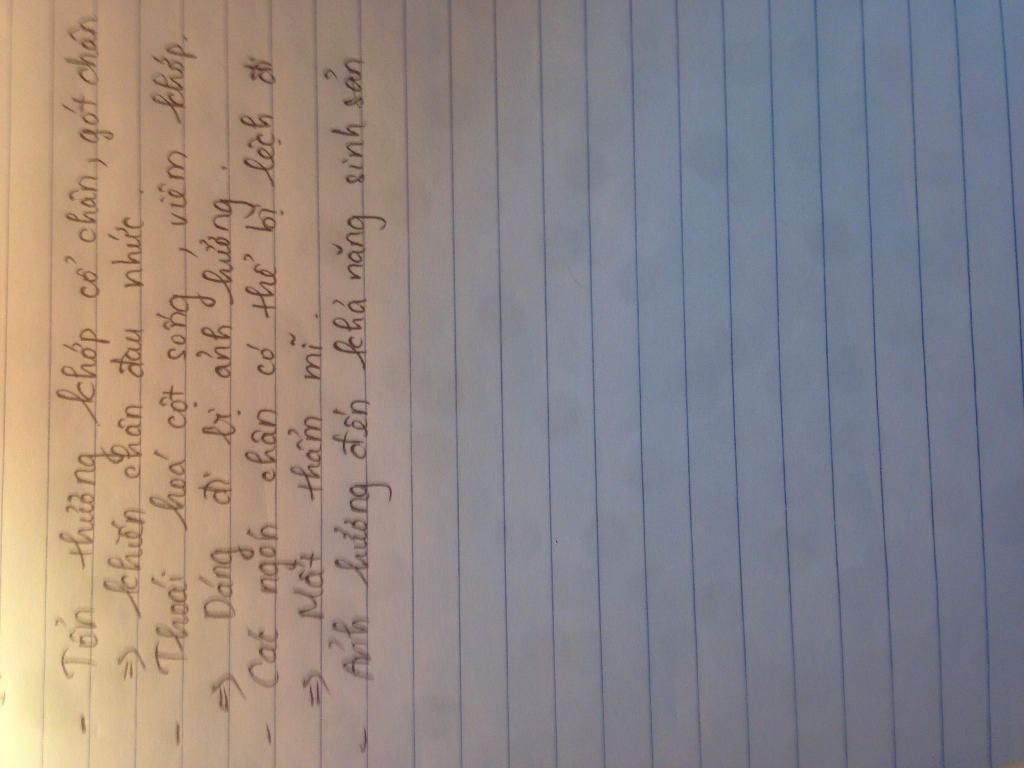 - Tổn thương khớp cổ chân, gót chân
=> khiến chân đau nhức.
- Thoái hoá cột sống, viêm khớp.
=> Dáng đi bị ảnh hưởng.
- Các ngón chân có thể bị lệch đi
=> Mất thẩm mĩ.
- Ảnh hưởng đến khả năng sinh sản